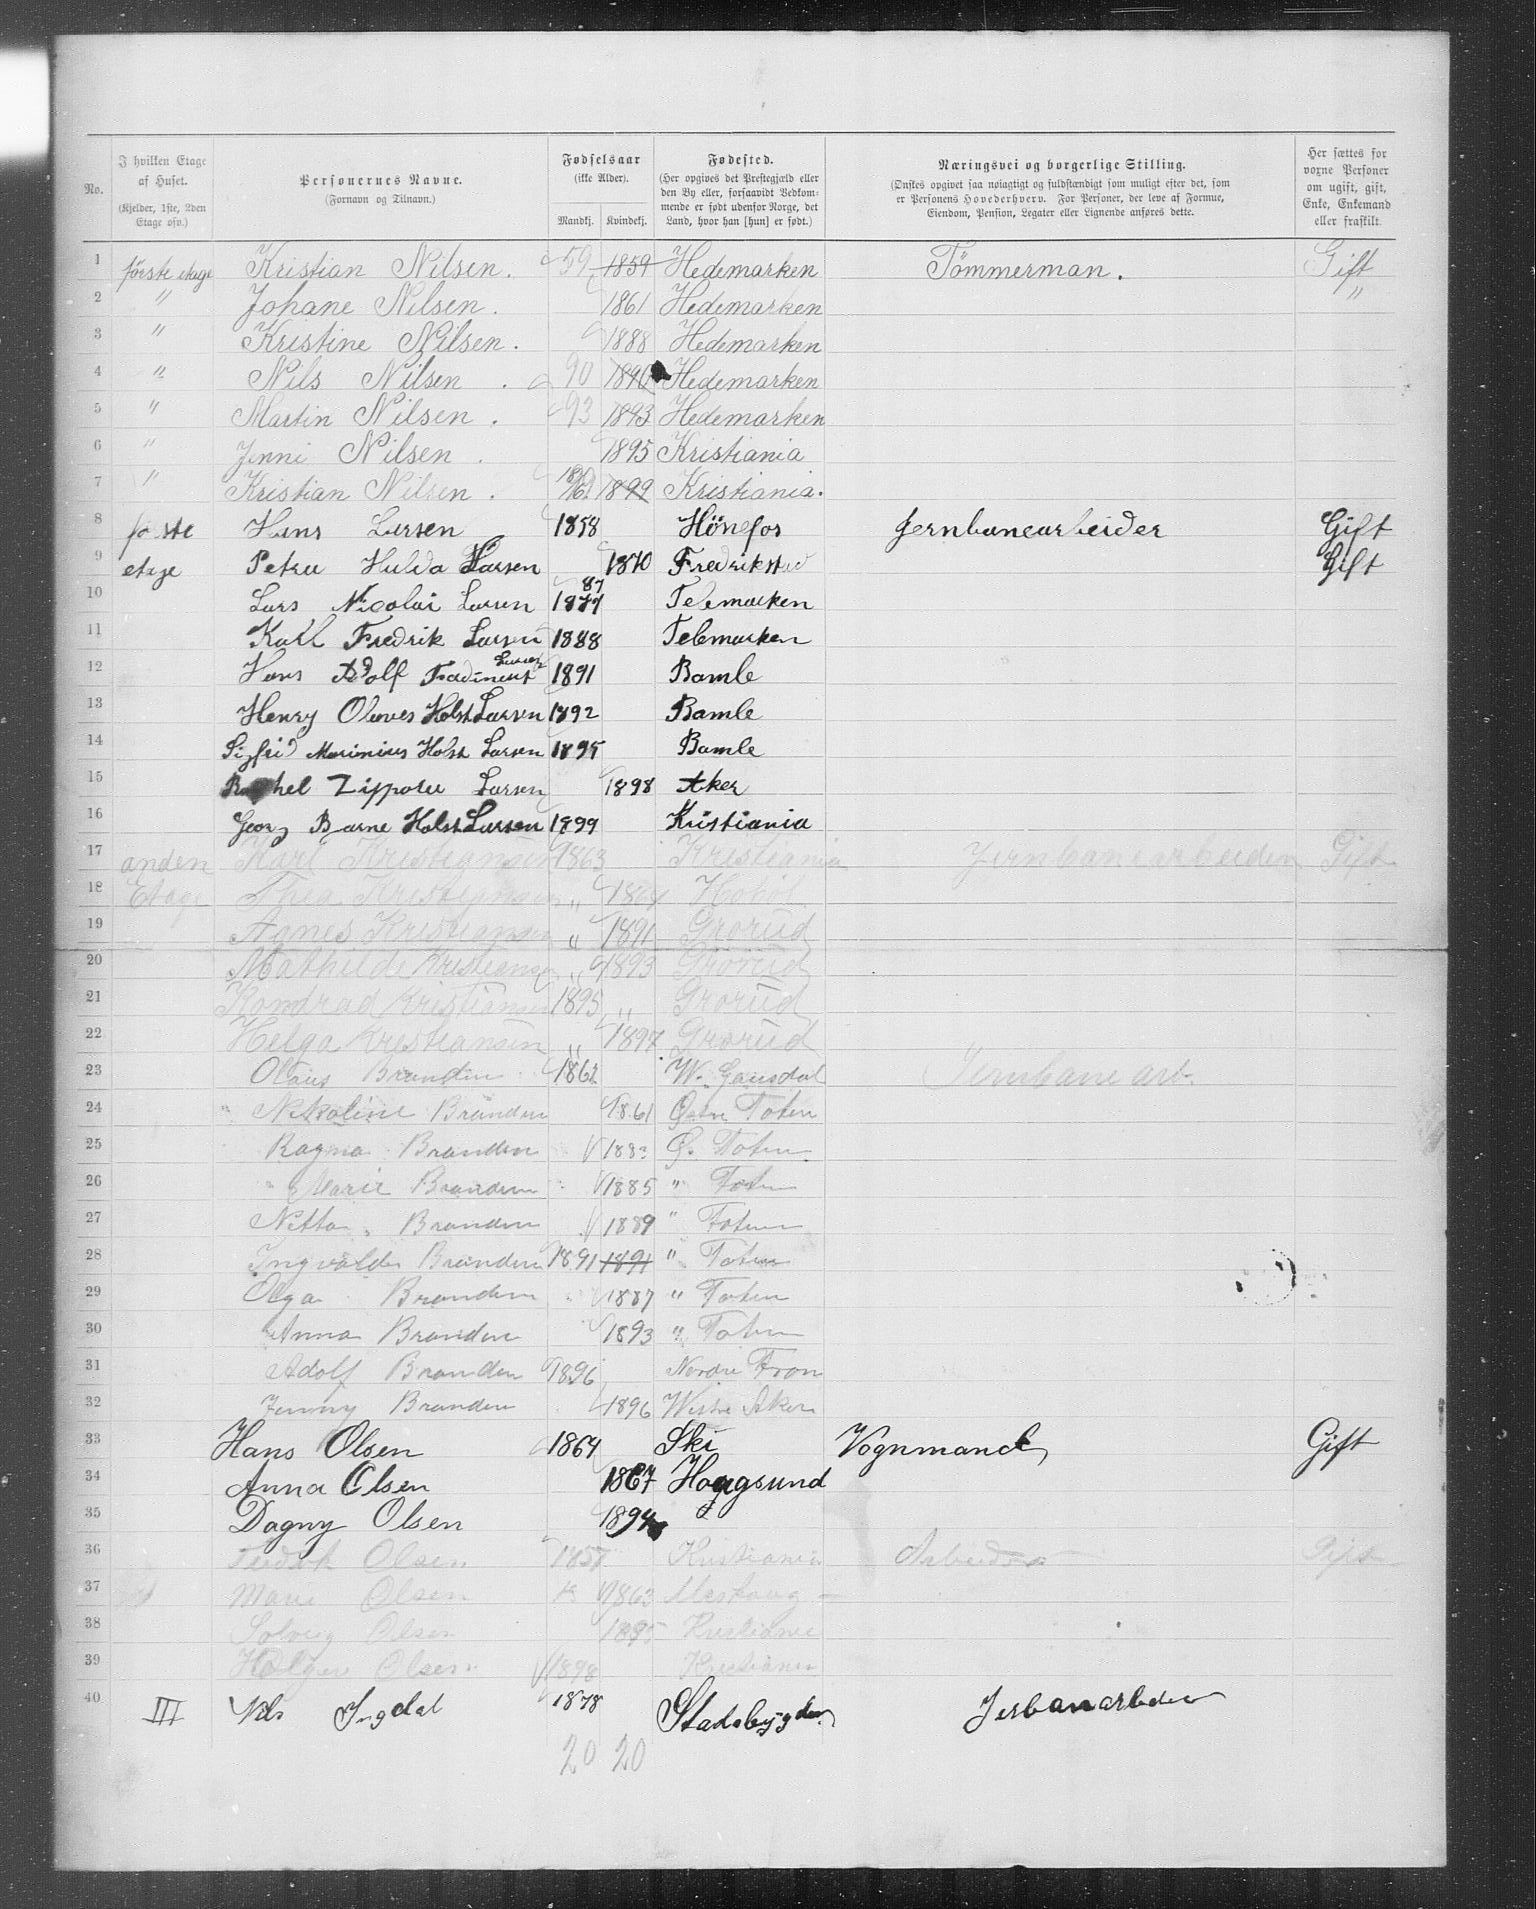 No. | I hvilken Etage af Huset. (Kjelder, 1ste, 2den Etage osv.) | Personernes Navne. (Fornavn og Tilnavn.) | Fødselsaar (ikke Alder). Mandkj. Kvindekj. | Fødested. (Her opgives det Prestegjæld eller den By eller, forsaavidt Vedkommende er født udenfor Norge, det Land, hvor han [hun] er født.) | Næringsvei og borgerlige Stilling. (Ønskes opgivet saa nøiagtigt og fuldstændigt som muligt efter det, som er Personens Hovederhverv. For Personer, der leve af Formue, Eiendom, Pension, Legater eller Lignende anføres dette. | Her sættes for voxne Personer om ugift, gift, Enke, Enkemand eller fraskilt.
1 förste etage Kristian Nilsen. 59 1859 Hedemarken Tömmerman. Gift
2 " Johane Nilsen. 1861 Hedemarken "
3 " Kristine Nilsen. 1888 Hedemarken
4 " Nils Nilsen. 90 1890 Hedemarken
5 " Martin Nilsen. 93 1893 Hedemarken
6 " Jenni Nilsen. 1895 Kristiania
7 " Kristian Nilsen. 1899 Kristiania.
8 Hans Larsen 1858 Hönefos Jernbanearbeider Gift
9 etage Petra Hulda Larsen 1870 Fredrikstad Gift
10 Lars Nicolai Larsen 87 1877 Telemarken
11 Karl Fredrik Larsen 1888 Telemarken
12 Hans Adolf Larsen 1891 Bamle
13 Henry Oluves Holst Larsen 1892 Bamle
14 Sigfrid Marinius Holst Larsen 1895 Bamle
15 Rachel Zippora Larsen 1898 Aker
16 Georg Bjarne Holst Larsen 1899 Kristiania
17 anden Karl Kristiansen 1863 Kristiania Jernbanearbeider Gift
18 Etage Thea Kristiansen " 1864 Hobøl
19 Agnes Kristiansen " 1891 Grorud
20 Mathilde Kristiansen " 1893 Grorud
21 Konrad Kristiansen 1895 " Grorud
22 Helga Kristiansen " 1897 Grorud
23 Olaus Branden 1862 W. Gausdal Jernbanearb.
24 " Nikoline Branden 1861 Østre Toten
25 Ragna Branden 1883 Ø. Toten
26 " Marie Branden 1885 " Toten
27 Netta Branden 1889 " Toten
28 Ingvald Branden 1891 1891 " Toten
29 Olga Branden 1887 " Toten
30 Anna Branden 1893 " Toten
31 Adolf Branden 1896 Nordre Fron
32 Jenny Branden 1896 Westre Aker
33 Hans Olsen 1864 Ski Vognmand Gift
34 Anna Olsen 1867 Hougsund
35 Dagny Olsen 1894
36 Fredrik Olsen 1857 Kristiania Arbeider Gift
37 Marie Olsen 1863
38 Solveig Olsen 1895 Kristiania
39 Holger Olsen 1898 Kristiania
40 III Nils Ingdal 1878 Stadsbygden Jerbanarbeder
20 20